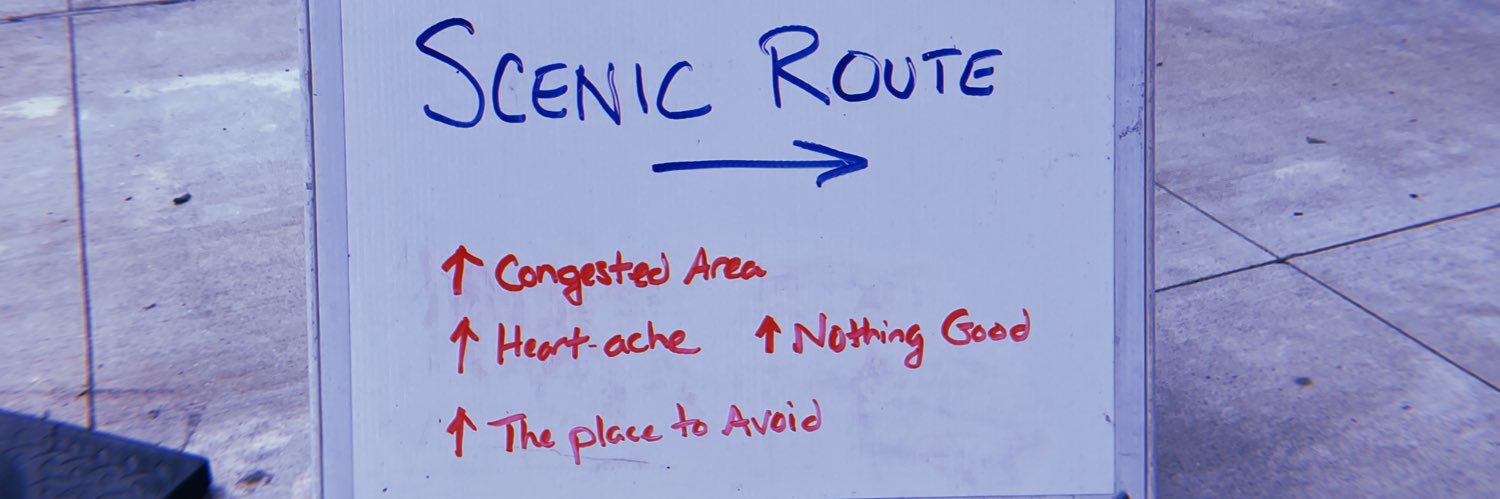 SCENIC ROUTE
→
↑ Congested Area
↑ Heart-ache ↑ Nothing Good
↑ The place to Avoid